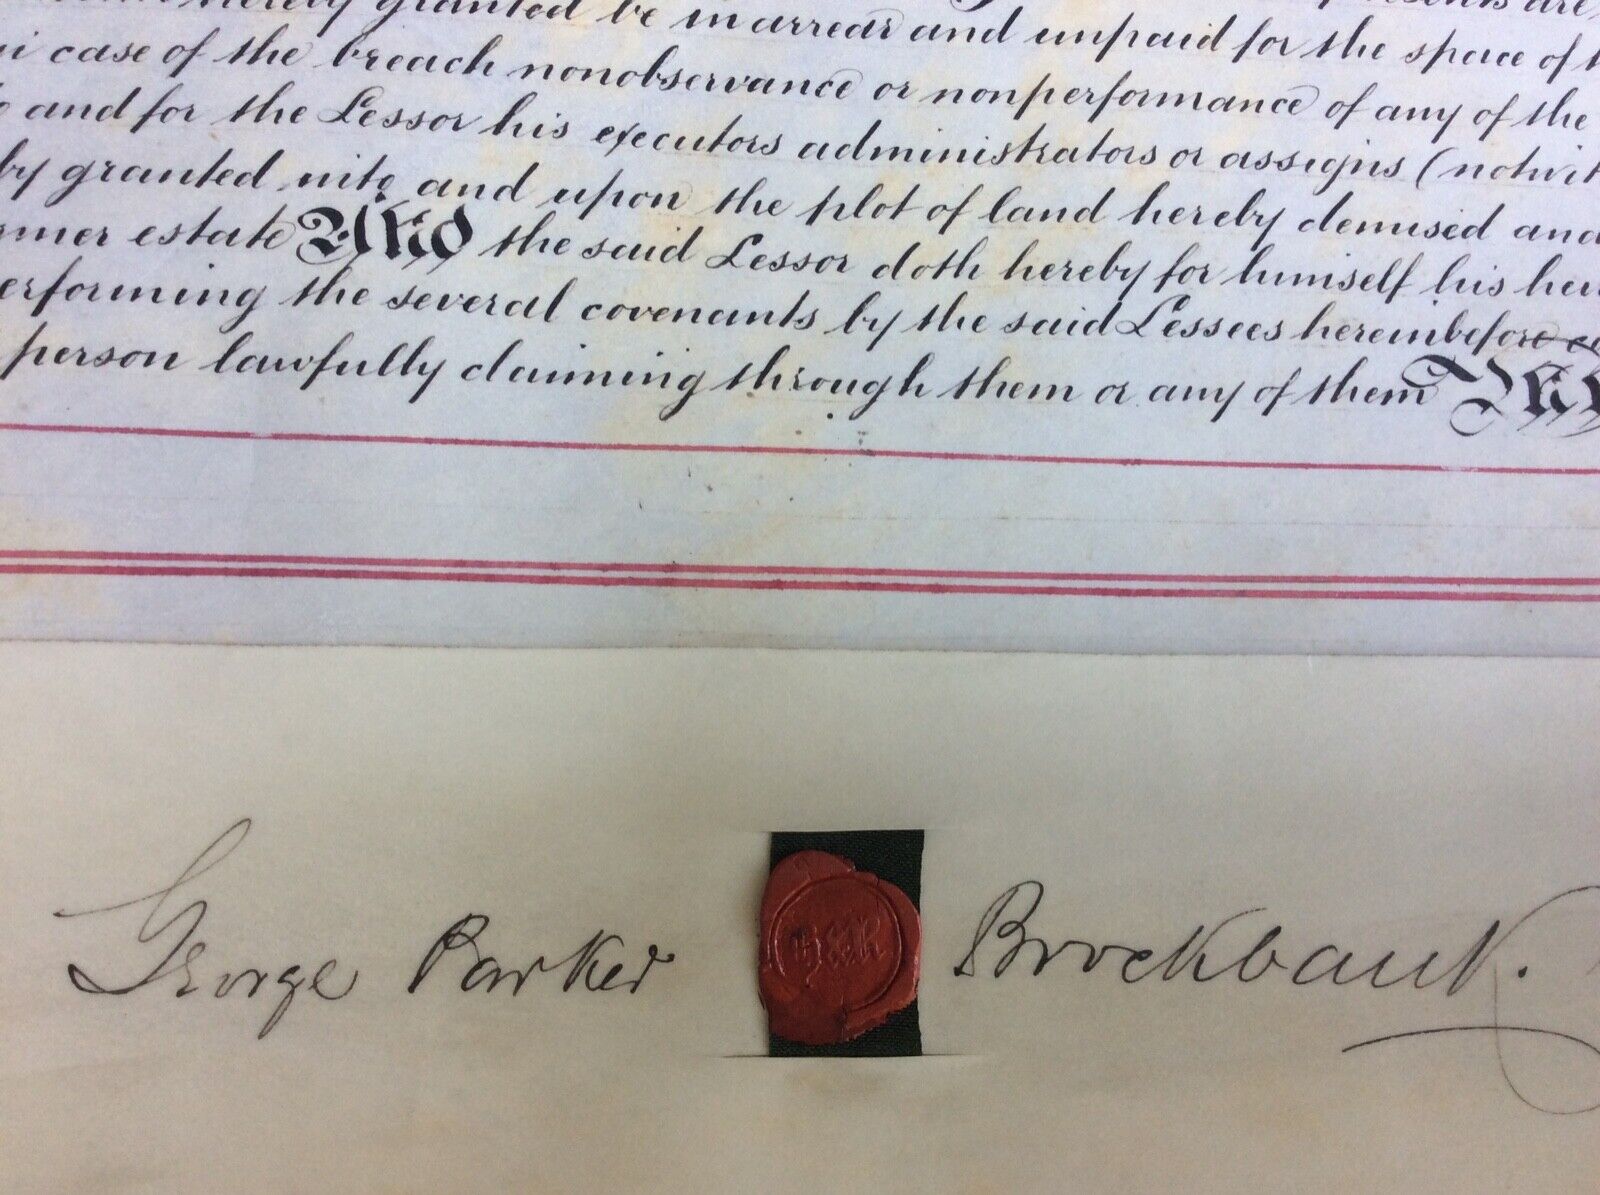 hereby granted be in arrear and unpaid for the space of
in case of the breach nonobservance or nonperformance of any of the
and for the Lessor his executors administrators or assigns (notwit
by granted into and upon the plot of land hereby demised and
rmer estate And the said Lessor doth hereby for himself his hei
erforming the several covenants by the said Lessees hereinbefore co
person lawfully claiming through them or any of them
George Parker Brockbank.